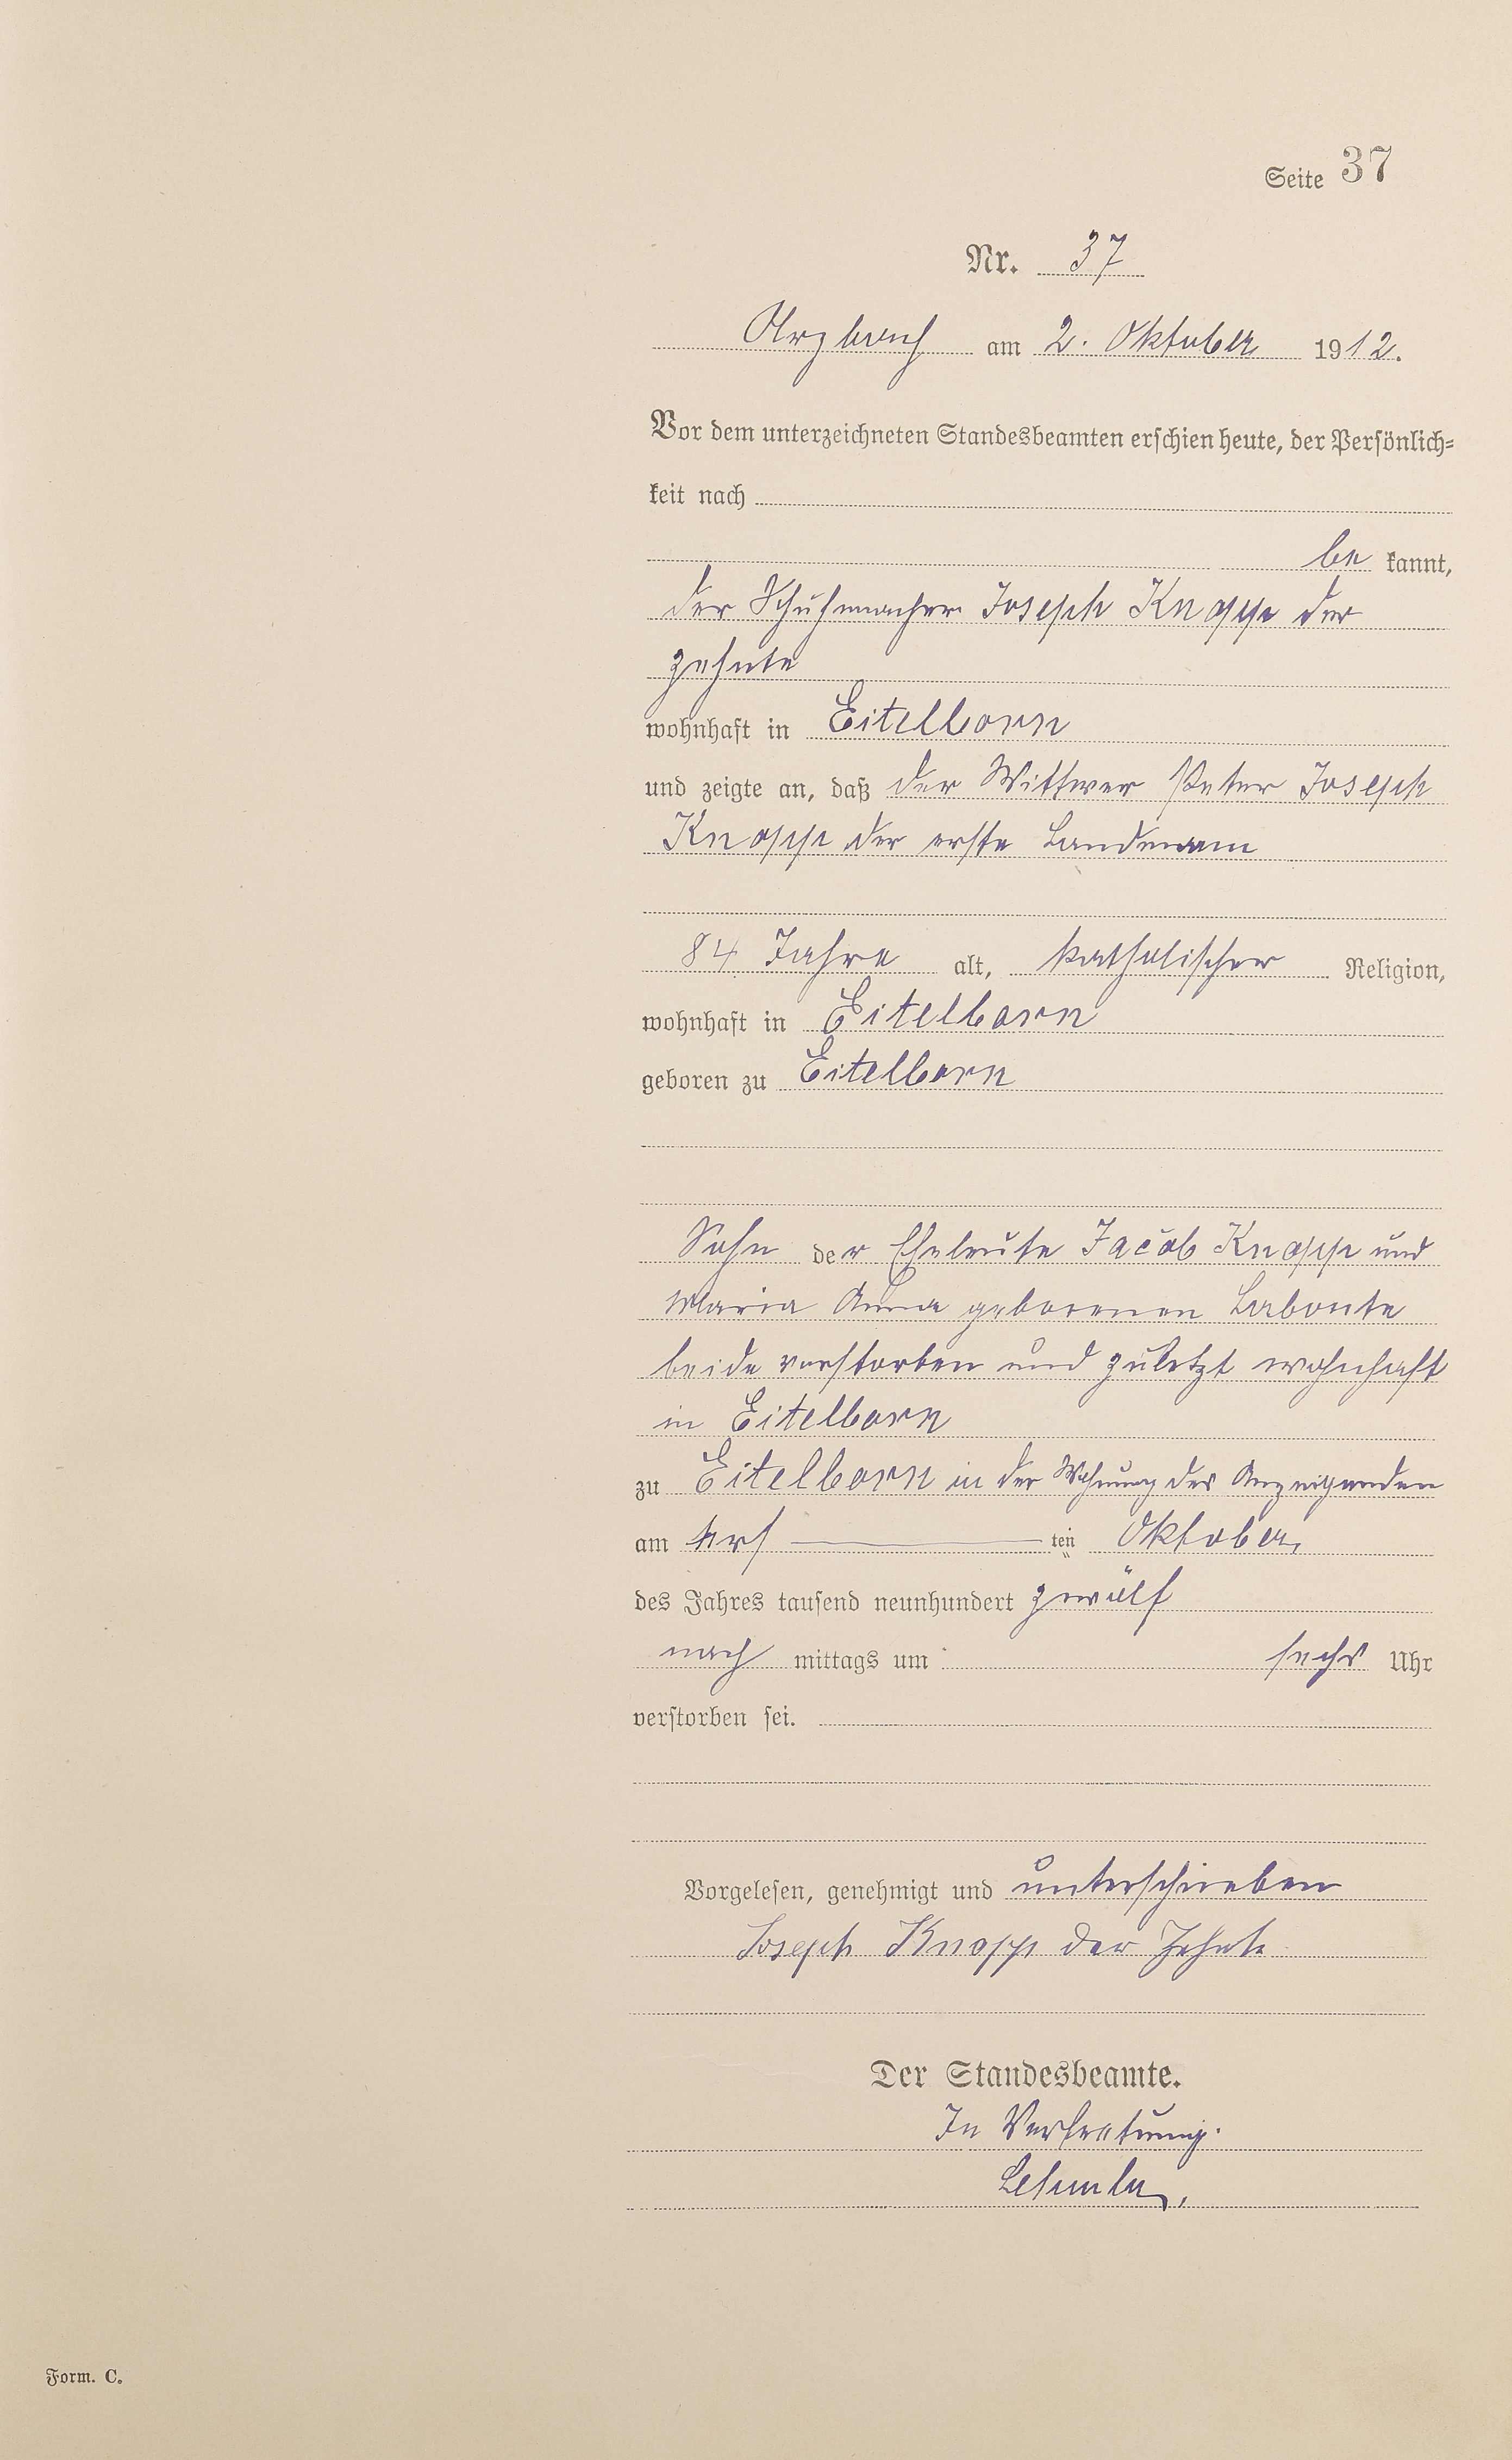 Seite 37
Nr. 37
Arzbach am 2. Oktober 1912.
Vor dem unterzeichneten Standesbeamten erschien heute, der Persönlich-
keit nach
be kannt,
der Schuhmacher Joseph Knopp der
zehnte
wohnhaft in Eitelborn
und zeigte an, daß der Wittwer Peter Joseph
Knopp der erste Landmann
84 Jahre alt, katholischer Religion,
wohnhaft in Eitelborn
geboren zu Eitelborn
Sohn der Eheleute Jacob Knopp und
Maria Anna geborenen Labonte
beide verstorben und zuletzt wohnhaft
in Eitelborn
zu Eitelborn in der Wohnung des Anzeigenden
am ten Oktober
des Jahres tausend neunhundert zwölf
nach mittags um sechs Uhr
verstorben sei.
Vorgelesen, genehmigt und unterschrieben
Joseph Knopp der Zehnte
Der Standesbeamte.
In Vertretung.
Form. C.